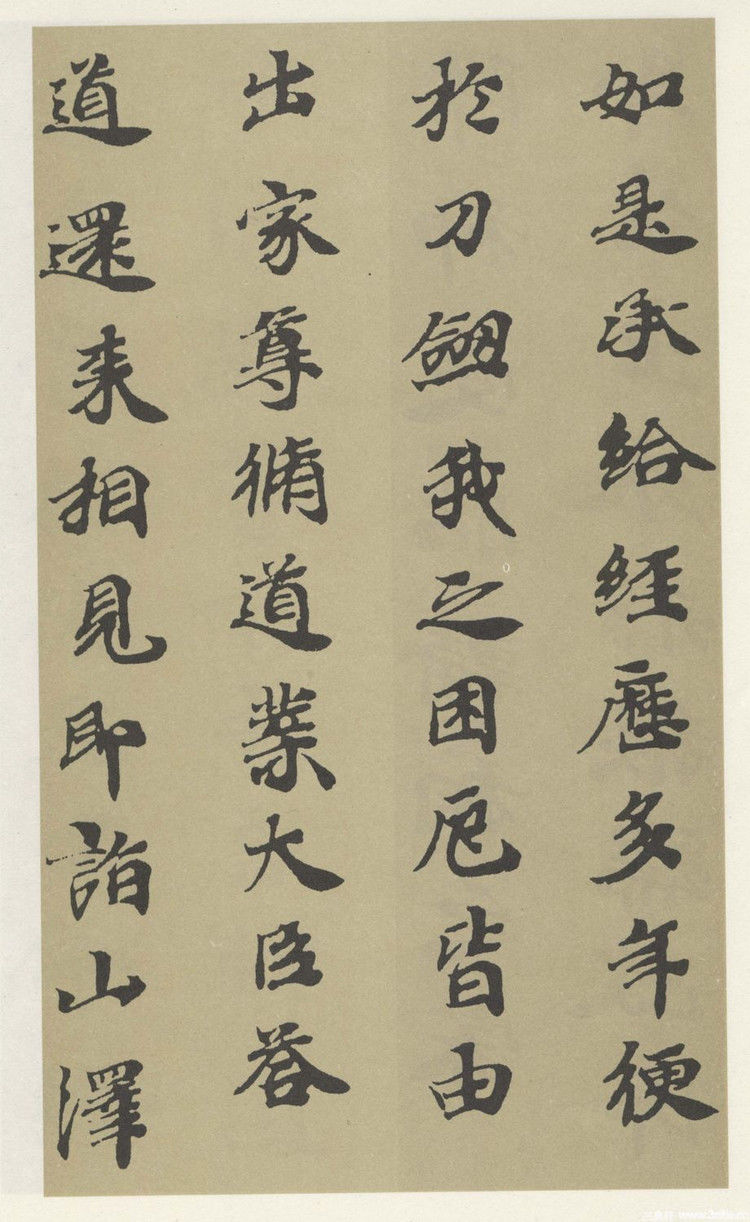 如是承給經歷多年便
於刀劒我之困厄皆由
出家尊脩道業大臣荅
道還来相見即詣山澤